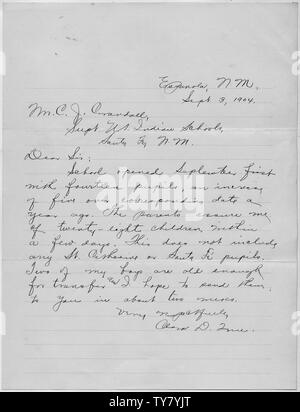 Espanola, N.M.
Sept. 3, 1904.
Mr. C. J. Crandall,
Supt. U.S. Indian Schools,
Santa Fe, N.M.
Dear Sir:
School opened September first
with fourteen pupils, an increase
of five over corresponding date a
year ago. The parents assure me
of twenty eight children within
a few days. This does not include
any St. Catherines or Santa Fe pupils.
Two of my boys are old enough
for transfer and I hope to send them
to you in about two weeks.
Very respectfully,
Clara D. True.
alamy
Image ID: TY7YJT
www.alamy.com